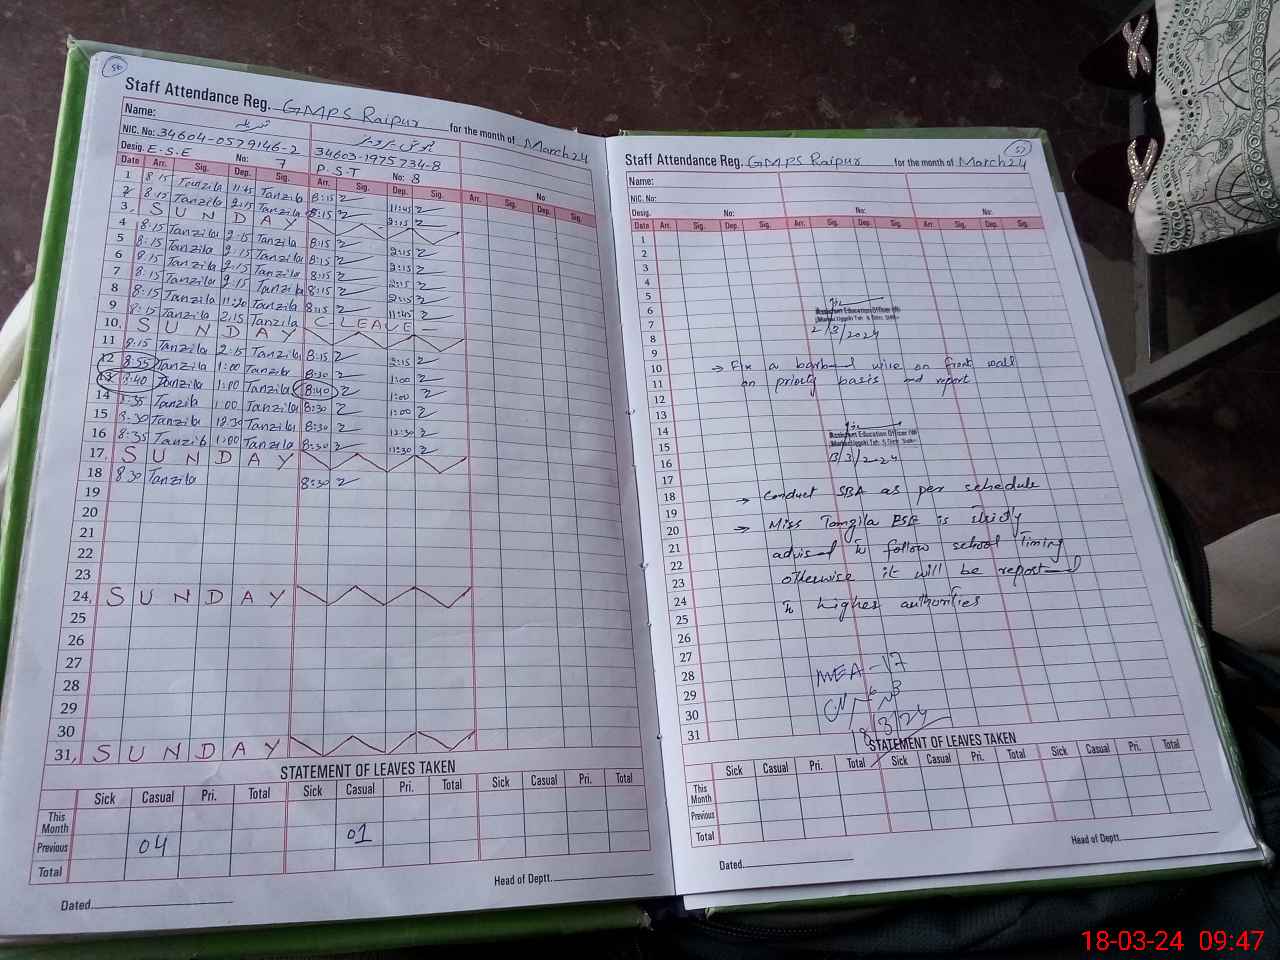 56
Staff Attendance Reg. GMPS Raipur for the month of March 24
Name: تنزیلہ
NIC. No: 34604-0579146-2 34603-1975734-8
Desig. E.S.E No: 7 P.S.T No: 8
Date Arr. Sig. Dep. Sig. Arr. Sig. Dep. Sig. Arr. Sig. Dep. Sig.
1 8:15 Tanzila 11:45 Tanzila 8:15 11:45
2 8:15 Tanzila 2:15 Tanzila 8:15 2:15
3. S U N D A Y
4 8:15 Tanzila 2:15 Tanzila 8:15 2:15
5 8:15 Tanzila 2:15 Tanzila 8:15 2:15
6 8:15 Tanzila 2:15 Tanzila 8:15 2:15
7 8:15 Tanzila 2:15 Tanzila 8:15 2:15
8 8:15 Tanzila 11:20 Tanzila 8:15 11:45
9 8:15 Tanzila 2:15 Tanzila C-LEAVE
10. S U N D A Y
11 8:15 Tanzila 2:15 Tanzila 8:15 2:15
12 8:35 Tanzila 1:00 Tanzila 8:30 1:00
13 8:40 Tanzila 1:00 Tanzila 8:40 1:00
14 8:35 Tanzila 1:00 Tanzila 8:30 1:00
15 8:30 Tanzila 12:30 Tanzila 8:30 12:30
16 8:35 Tanzila 1:00 Tanzila 8:30 11:30
17. S U N D A Y
18 8:30 Tanzila 8:30
19
20
21
22
23
24. S U N D A Y
25
26
27
28
29
30
31. S U N D A Y
STATEMENT OF LEAVES TAKEN
Sick Casual Pri. Total Sick Casual Pri. Total Sick Casual Pri. Total
This Month
Previous 04 01
Total
Head of Deptt.
Dated
57
Staff Attendance Reg. GMPS Raipur for the month of March 24
Name:
NIC. No:
Desig. No: No: No:
Date Arr. Sig. Dep. Sig. Arr. Sig. Dep. Sig. Arr. Sig. Dep. Sig.
1
2
3
4
5
6 Assistant Education Officer
7 2/3/2024
8
9
10 → Fix a barbed wire on front wall
11 on priority basis and report
12
13
14 Assistant Education Officer
15
16 13/3/2024
17
18 → Conduct SBA as per schedule
19
20 → Miss Tanzila ESE is strictly
21 advised to follow school timing
22
23 otherwise it will be reported
24 to higher authorities
25
26
27
28 MEA-17
29
30
31 18/3/24
STATEMENT OF LEAVES TAKEN
Sick Casual Pri. Total Sick Casual Pri. Total Sick Casual Pri. Total
This Month
Previous
Total
Head of Deptt.
Dated
18-03-24 09:47